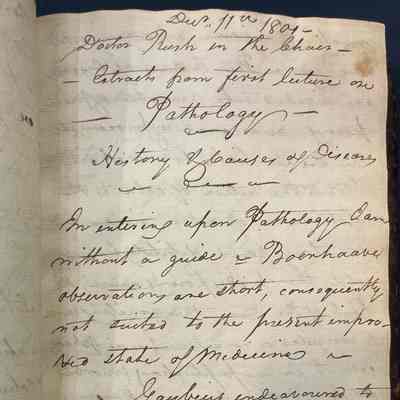 Decr. 11th 1801 —
Doctor Rush in the Chair —
— Extracts from first lecture on
— Pathology —
History & Causes of Diseases
In entering upon Pathology I am
without a guide ~ Boerhaaves
observations are short, consequently
not suited to the present impro-
ved state of Medicine ~
Gaubius endeavoured to